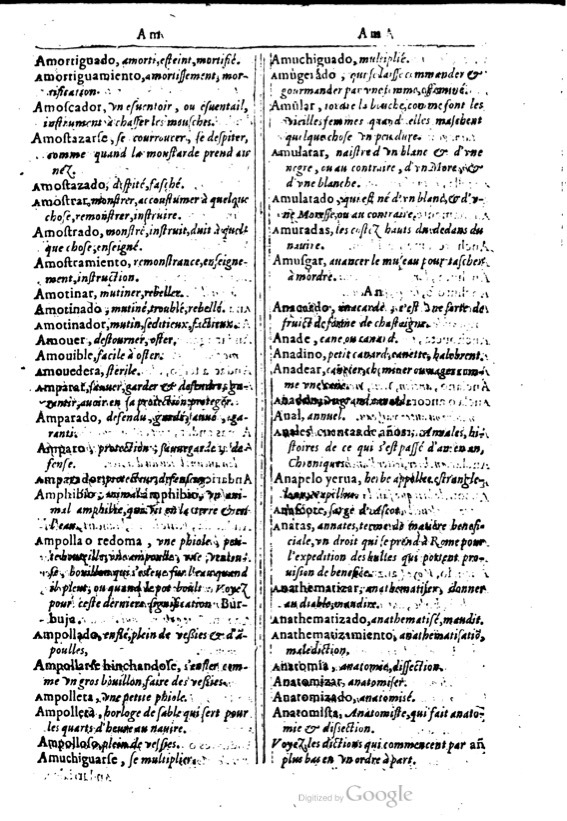 Am
Amortiguado, amorti, esteint, mortifié.
Amortiguamiento, amortissement, mor-
tification.
Amoscador, vn esuentoir, ou esuentail,
instrument à chasser les mousches.
Amostazarse, se courroucer, se despiter,
comme quand la moustarde prend au
nez.
Amostazado, despité, fasché.
Amostrar, monstrer, accoustumer à quelque
chose, remonstrer, instruire.
Amostrado, monstré, instruit, duit à quel
que chose, enseigné.
Amostramiento, remonstrance, enseigne-
ment, instruction.
Amotinar, mutiner, rebeller.
Amotinado, mutiné, troublé, rebellé.
Amotinador, mutin, seditieux, factieux.
Amouer, destourner, oster.
Amouible, facile à oster.
Amouedera, sterile.
Amparar, sauuer, garder & defendre, ga-
rantir, auoir en sa protection, proteger.
Amparado, defendu, gardé, sauué, ga-
ranti.
Amparo, protection, sauuegarde, de-
fense.
Amparador, protecteur, defenseur.
Amphibio, animal amphibio, vn ani-
mal amphibie, qui vit en la terre & en
l'eau.
Ampolla o redoma, vne phiole, pe-
vne ampoulle, vne
bouillon qui s'esleue sur l'eau quand
il pleut, ou quand le pot boult. Voyez
pour ceste derniere signification Bur-
buja.
Ampollado, enflé, plein de vessies & d'ã-
poulles,
Ampollarse hinchandose, s'enfler com-
me vn gros bouillon, faire des vessies.
Ampolleta, vne petite phiole.
Ampolleta, horloge de sable qui sert pour
les quarts d'heure au nauire.
Ampolloso, plein de vessies.
Amuchiguarse, se multiplier.
Am
Amuchiguado, multiplié.
Amugerado, qui se laisse commander &
gourmander par vne femme, effeminé.
Amular, tordre la bouche, comme font les
vieilles femmes quand elles maschent
quelque chose vn peu dure.
Amulatar, naistre d'vn blanc & d'vne
negre, ou au contraire, d'vn More, &
d'vne blanche.
Amulatado, qui est né d'vn blanc, & d'v-
ne Moresse, ou au contraire.
Amuradas, les costez hauts du dedans du
nauire.
Amusgar, auancer le museau pour tascher
à mordre.
An
Anacardo, anacarde, c'est vne sorte de
fruict de forme de chastaigne.
Anade, cane, ou canard.
Anadino, petit canard, canette, halebrent.
Anadear, cheminer ou nager com-
me vne cane.
Anual, annuel.
Anales cuentas de años, Annales, hi-
stoires de ce qui s'est passé d'an en an,
Chroniques.
Anapelo yerua, herbe appellee, estrangle-
Anascote, sarge d'ascot.
Anatas, annates, terme de matiere benefi-
ciale, vn droit qui se prend à Rome pour
l'expedition des bulles qui portent pro-
uision de benefice.
Anathematizar, anathematiser, donner
au diable, maudire.
Anathematizado, anathematisé, maudit.
Anathematizamiento, anathematisatiõ,
malediction.
Anatomia, anatomie, dissection.
Anatomizar, anatomiser.
Anatomizado, anatomisé.
Anatomista, Anatomiste, qui fait anato-
mie & dissection.
Voyez les dictions qui commencent par añ
plus bas en vn ordre à part.
Digitized by Google